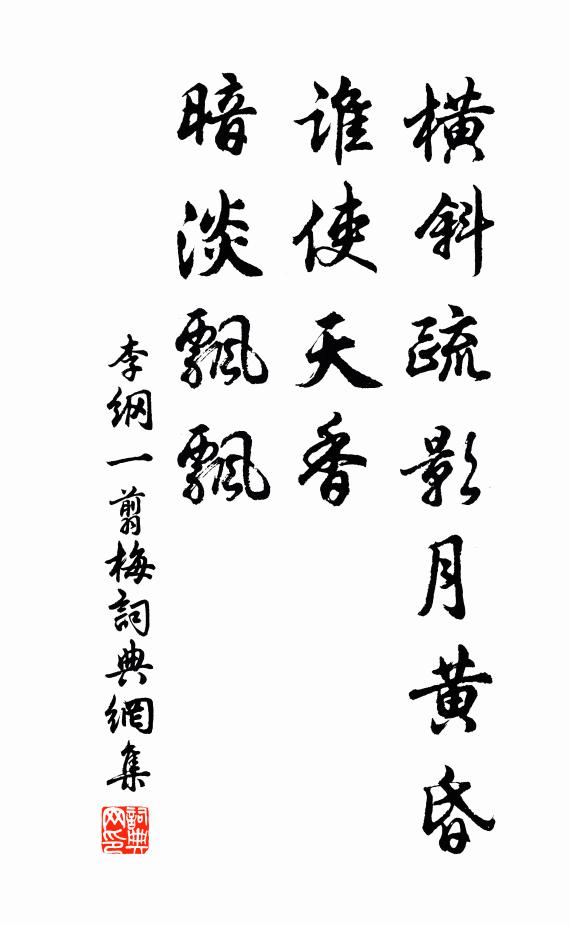 横斜疏影月黄昏
谁使天香
暗淡飘飘
李纲一剪梅詞典網集
詞典网印